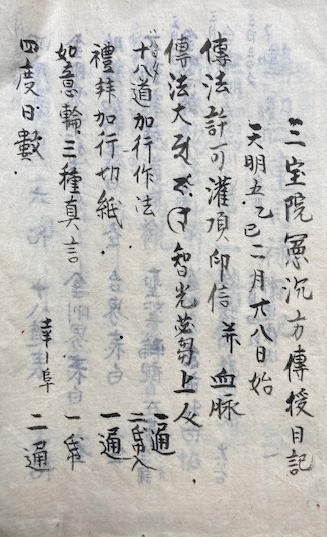 三宝院憲沉方傳授日記
天明五乙巳二月六八日始
傳法許可灌頂印信 并血脉
傳法大 智光 上人
十八道加行作法 一通
禮拜加行切紙 一通
如意輪三種真言 一帋
四度日數 二通